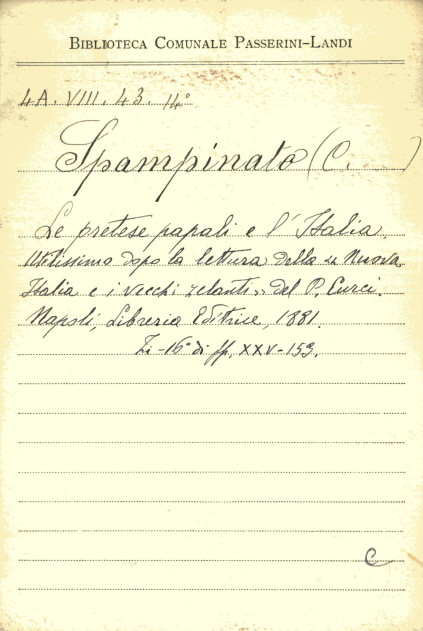 BIBLIOTECA COMUNALE PASSERINI-LANDI
4A. VIII. 43. 14°
Spampinato (C. )
Le pretese papali e l'Italia.
Utilissimo dopo la lettura della « Nuova
Italia e i vecchi zelanti » del P. Curci.
Napoli, Libreria Editrice, 1881.
In-16° di pp. XXV-153.
C